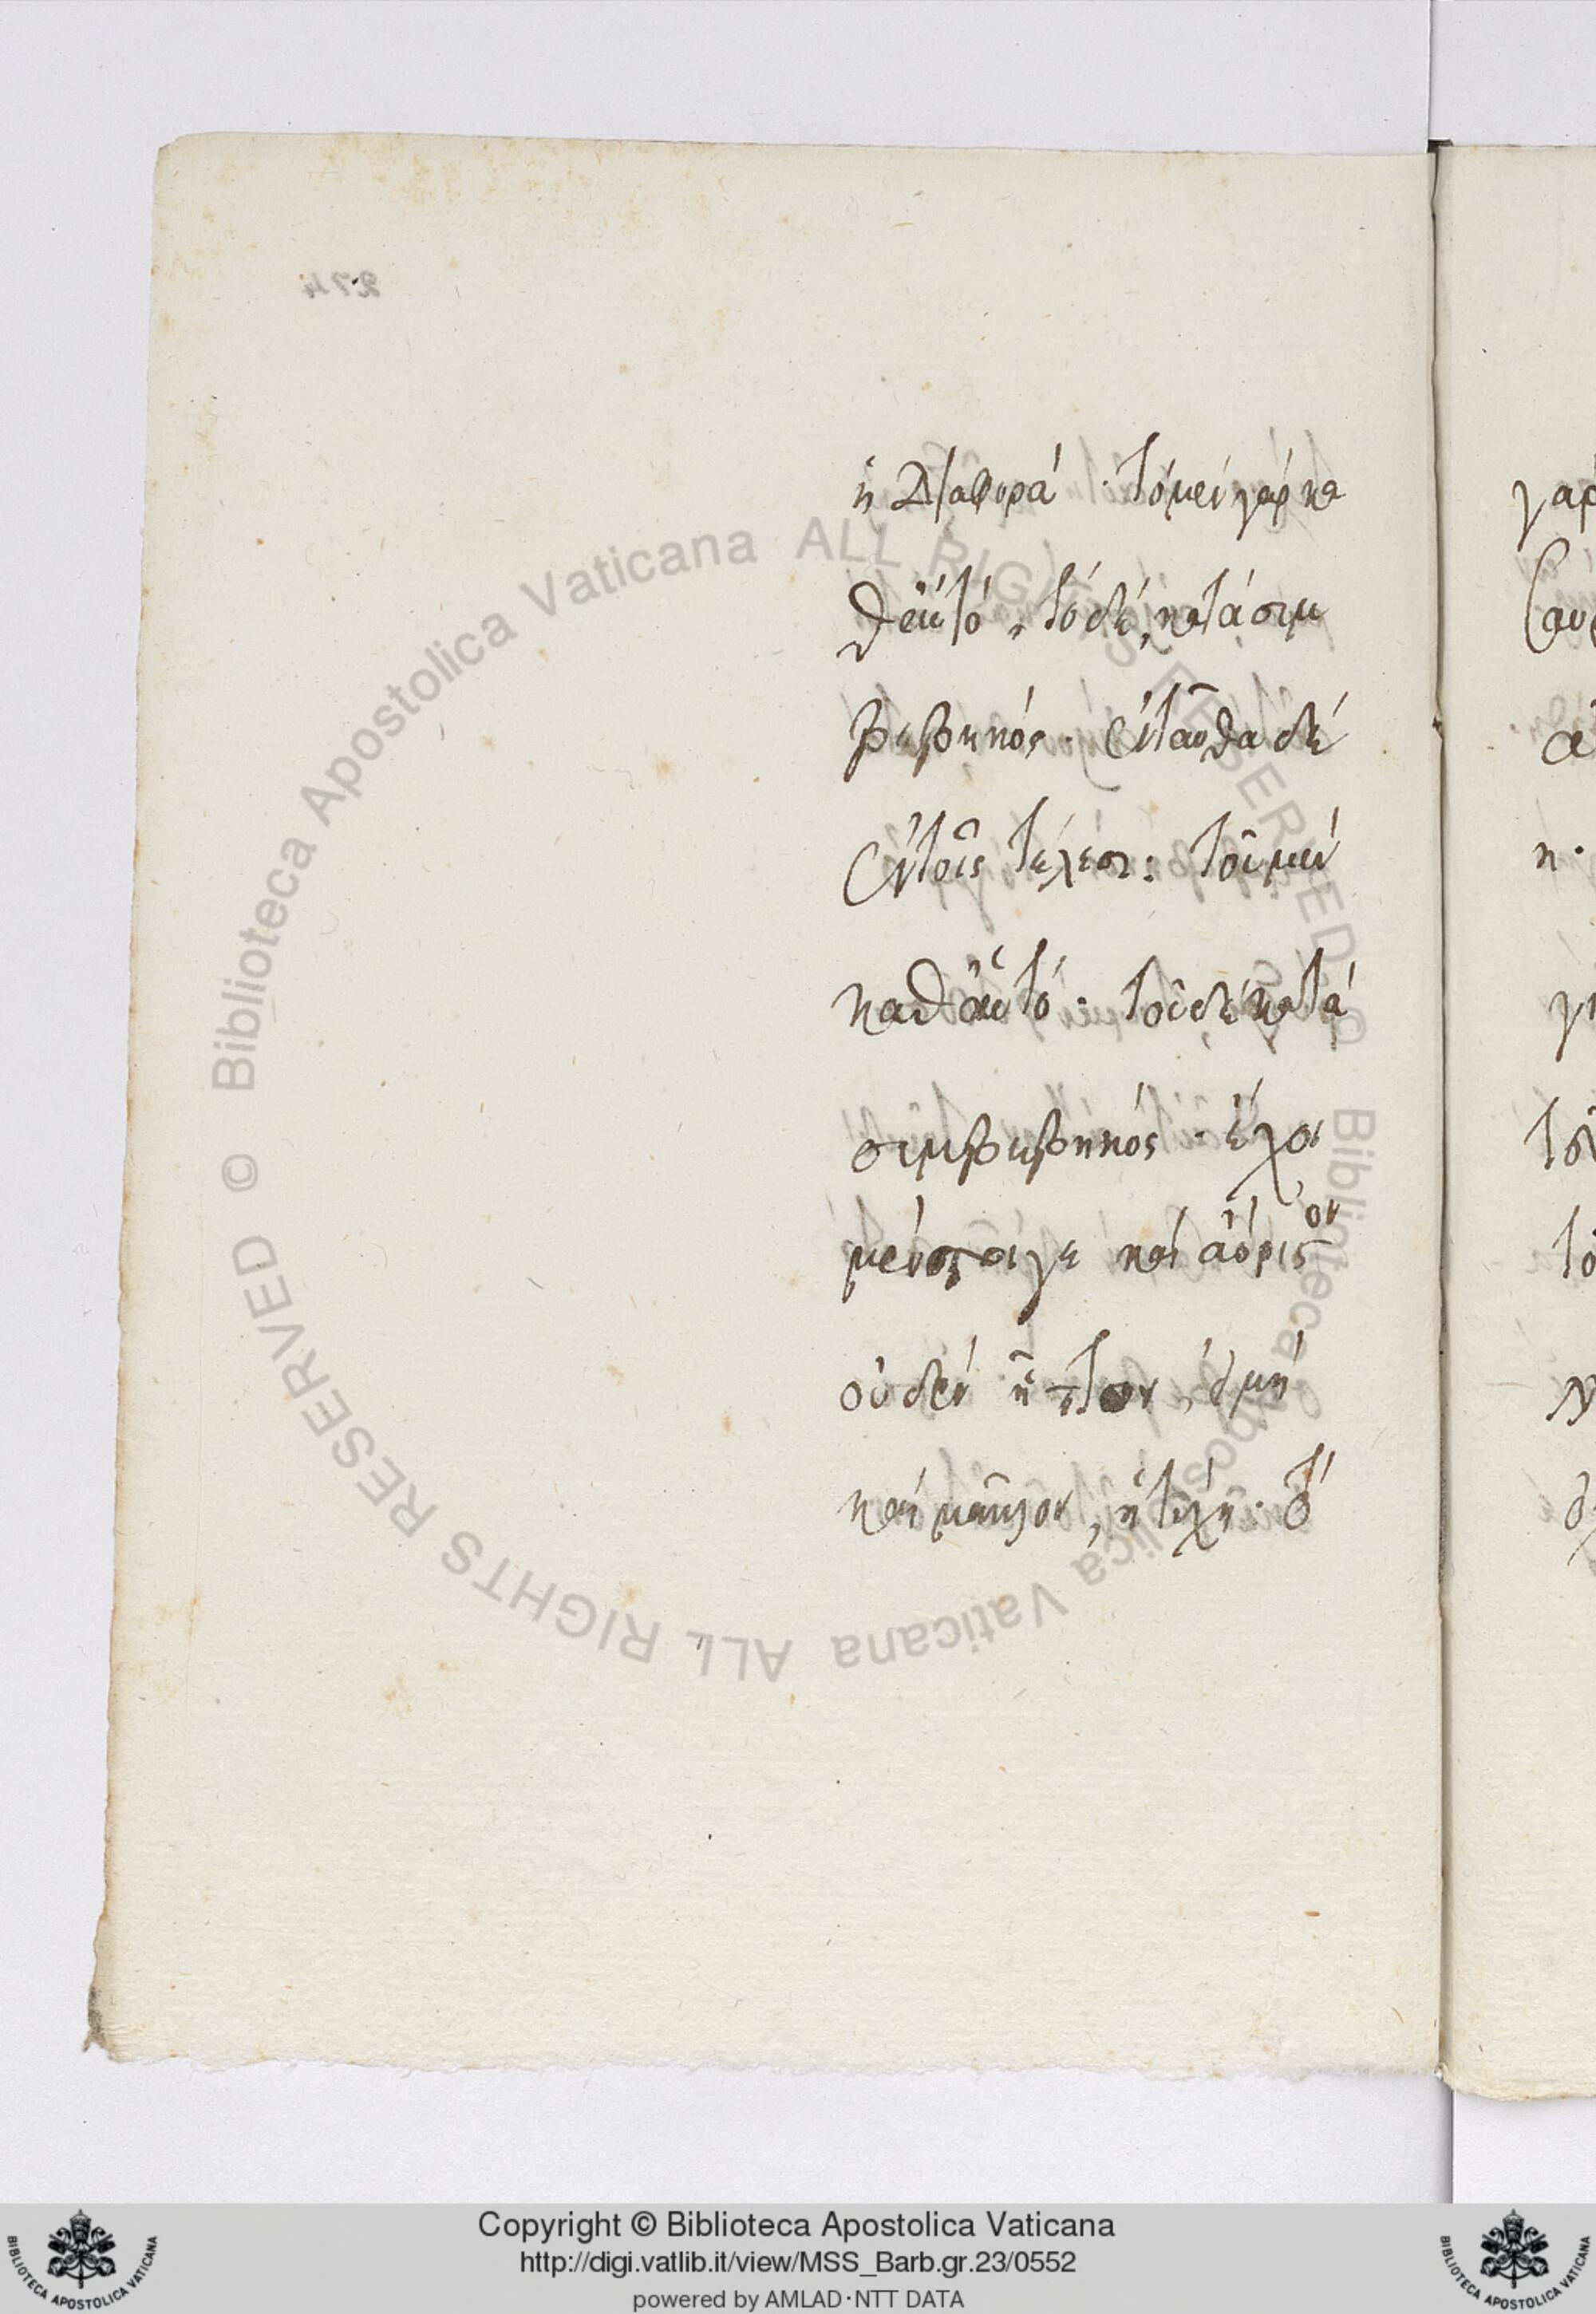 274
ἡ Διαφορά · τὸ μὲν γὰρ κα
θ' αὑτό, τὸ δὲ, κατὰ συμ
βεβηκός · ἐνταῦθα δὲ
ἐν τοῖς τέλεσι : τοῦ μὲν
καθ' αὑτό · τοῦ δὲ κατὰ
συμβεβηκός · ἔχει
μέντοι γε καὶ ἀόριστον
οὐδὲν ἧττον, εἰ μὴ
καὶ μᾶλλον, ἡ τύχη · τ
γαρ
α
η ·
γι
τὸ
Biblioteca Apostolica Vaticana ALL RIGHTS RESERVED ©
Biblioteca Apostolica Vaticana ALL RIGHTS RESERVED ©
Copyright © Biblioteca Apostolica Vaticana
http://digi.vatlib.it/view/MSS_Barb.gr.23/0552
powered by AMLAD·NTT DATA
BIBLIOTECA APOSTOLICA VATICANA
BIBLIOTECA APOSTOLICA VATICANA